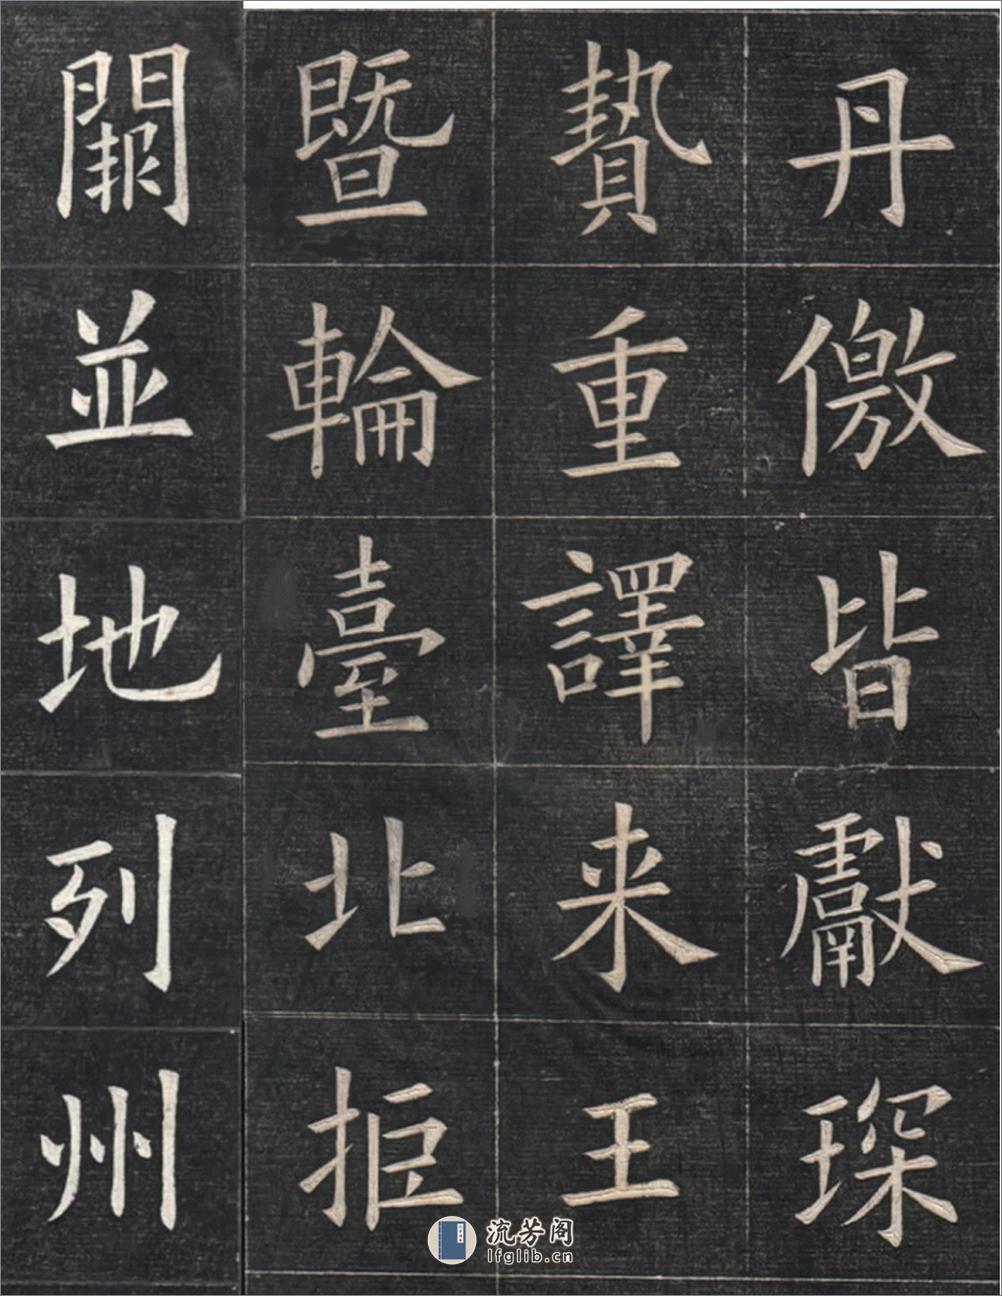 丹儌皆獻琛
贄重譯来王
暨輪臺北拒
闕並地列州
流芳阁
lfglib.cn